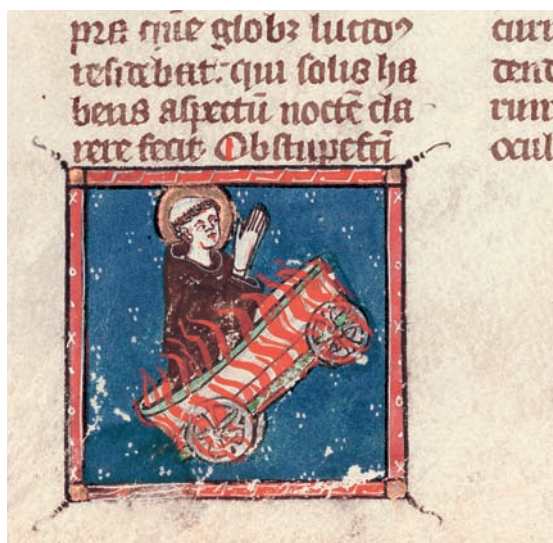 pra que globꝫ lucidꝰ
residebat. qui solis ha
bens aspectū noctē cla
rere fecit Obstupefcī
rum
ocul